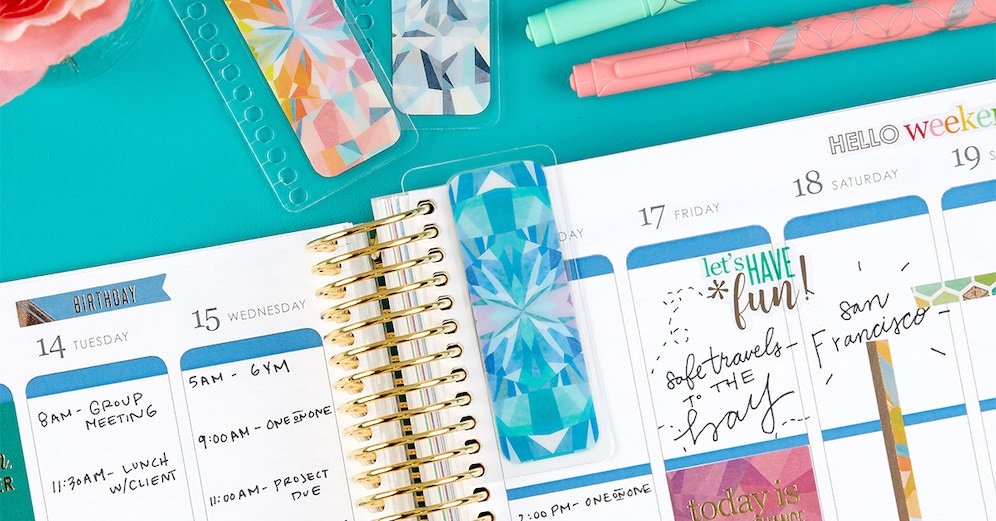 BIRTHDAY
14 TUESDAY
8AM - GROUP
MEETING
11:30AM - LUNCH
W/CLIENT
15 WEDNESDAY
5AM - GYM
9:00AM - ONE ON ONE
11:00AM - PROJECT
DUE
2:00PM - ONE ON ONE
17 FRIDAY
let's HAVE
*fun!
safe travels -
TO THE
bay
today is
HELLO weeken
18 SATURDAY
San
Francisco
19 S